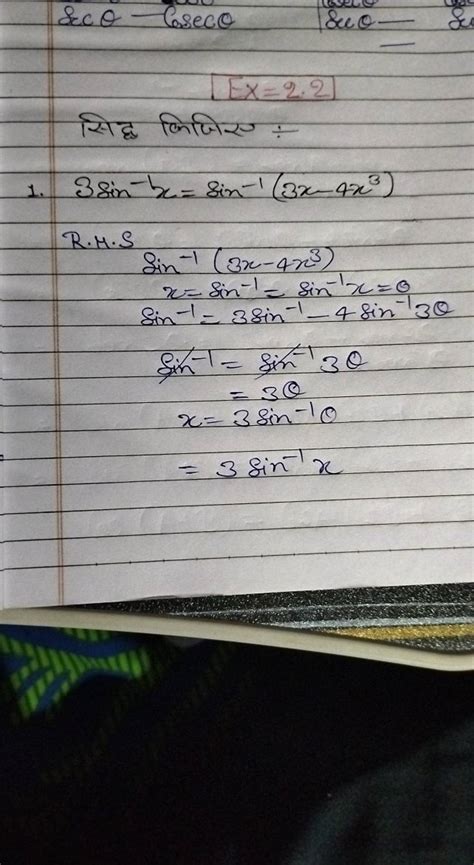 Sec θ – Cosec θ
Ex = 2.2
सिद्ध किजिए ÷
1. 3 Sin⁻¹x = Sin⁻¹ (3x – 4x³)
R.H.S
Sin⁻¹ (3x – 4x³)
x = Sin⁻¹ = Sin⁻¹x = θ
Sin⁻¹ = 3 Sin⁻¹ – 4 Sin⁻¹ 3θ
Sin⁻¹ = Sin⁻¹ 3θ
= 3θ
x = 3 Sin⁻¹θ
= 3 Sin⁻¹ x